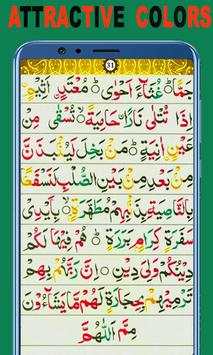 ATTRACTIVE COLORS
31
غُثَآءً اَحْوٰى
اِذَا تُتْلٰى نَارًا حَامِيَةً مِنْ
عَيْنٍ اٰنِيَةٍ مَنْۢ بَخِلَ لَيُنْۢبَذَنَّ
مِنْۢ بَعْدِ مِنْۢ بَيْنِ الصُّلْبِ لَنَسْفَعًۢا
بِالنَّاصِيَةِ مُطَهَّرَةٍۭ بِاَيْدِيْ
سَفَرَةٍ كِرَامٍۢ بَرَرَةٍ هُمْ فِيْهَا لَكُمْ
دِيْنُكُمْ اِنَّ رَبَّهُمْ بِهِمْ
تَرْمِيْهِمْ بِحِجَارَةٍ لَهُمْ مَا يَشَآءُوْنَ
اللّٰهُمَّ